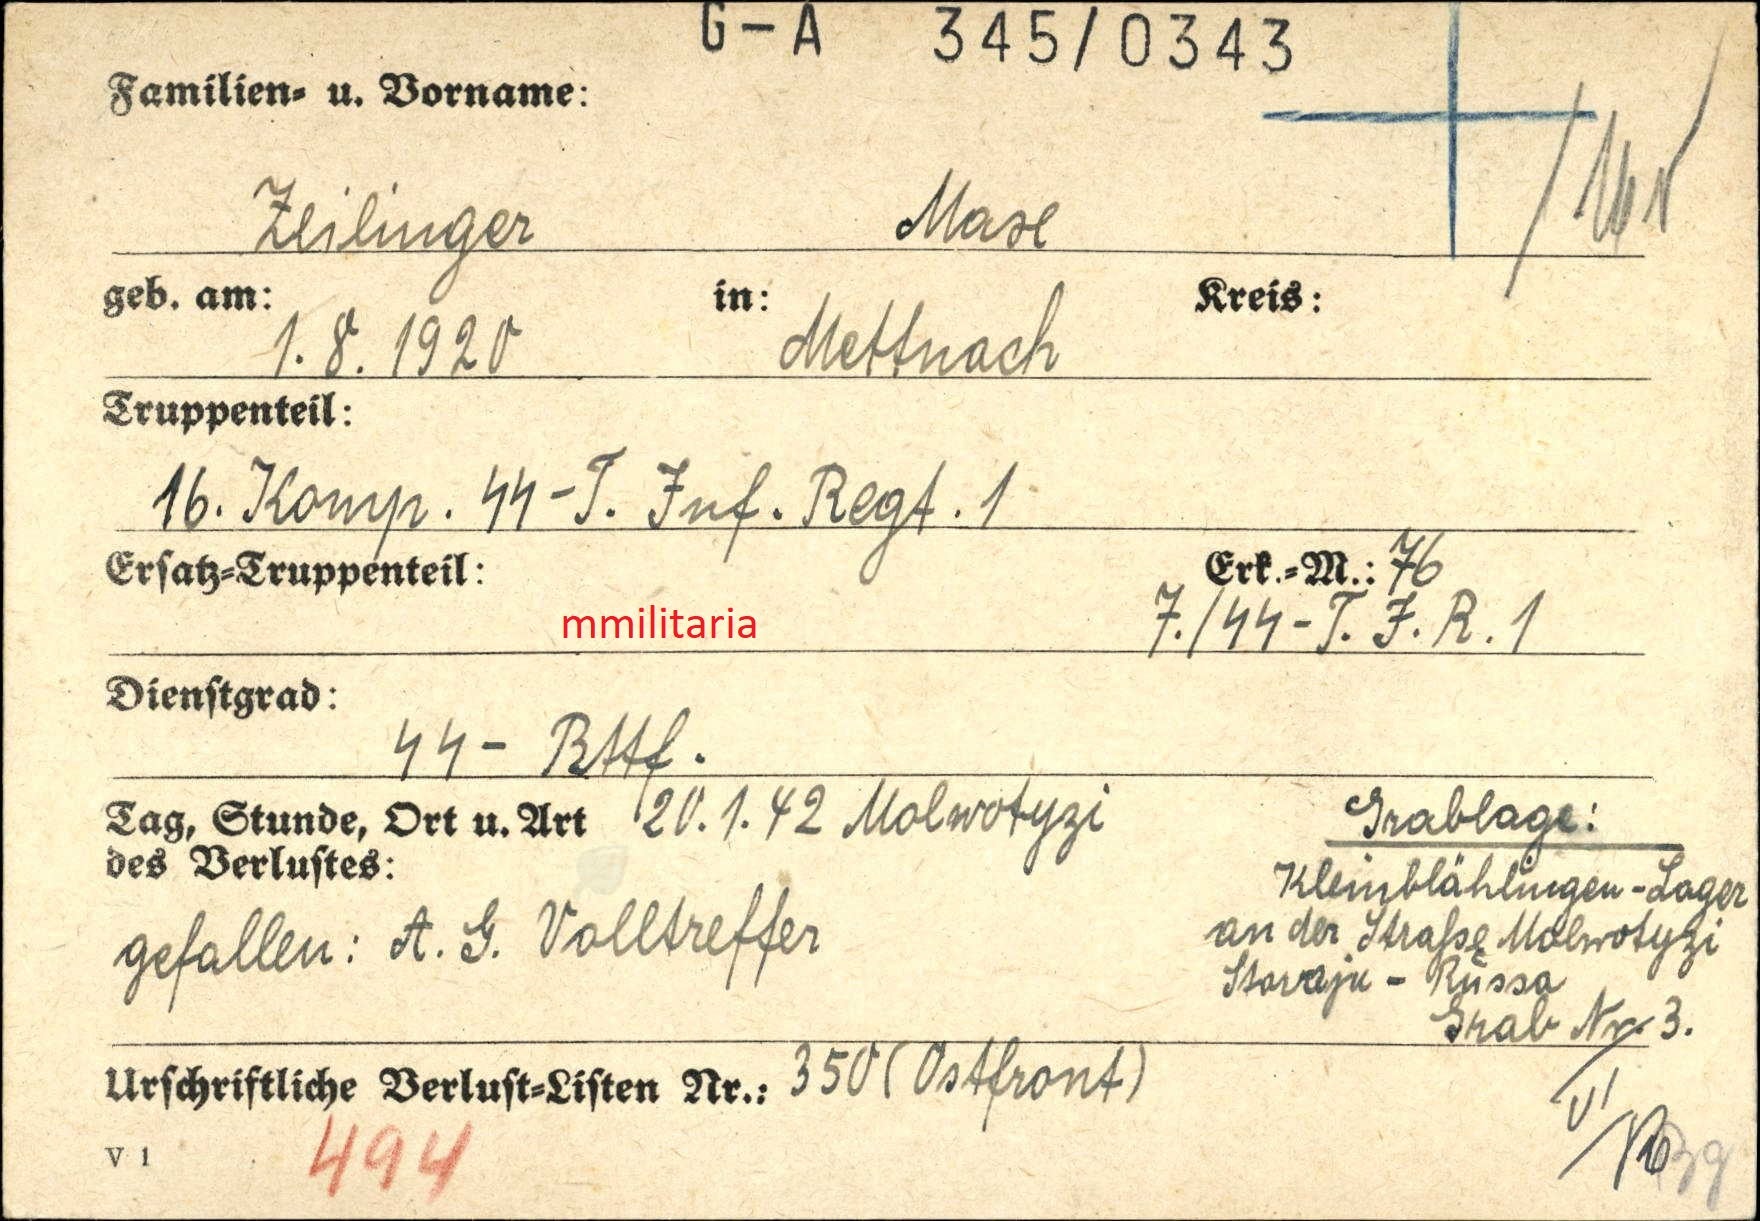 G-A 345/0343
Familien- u. Vorname:
Zeilinger Mase
geb. am: in: Kreis:
1.8.1920 Mettnach
Truppenteil:
16. Komp. 44-T. Inf. Regt. 1
Ersatz-Truppenteil: Erk.-M.: 76
mmilitaria
7./44-T. I. R. 1
Dienstgrad:
44- Rttf.
Tag, Stunde, Ort u. Art 20.1.42 Molwotyzi
des Verlustes:
gefallen: A. G. Volltreffer
Grablage:
Kleinblählingen-Lager
an der Straße Molwotyzi
Staraja - Rüssa
Grab Nr. 3.
Urschriftliche Verlust-Listen Nr.: 350 (Ostfront)
V 1
494